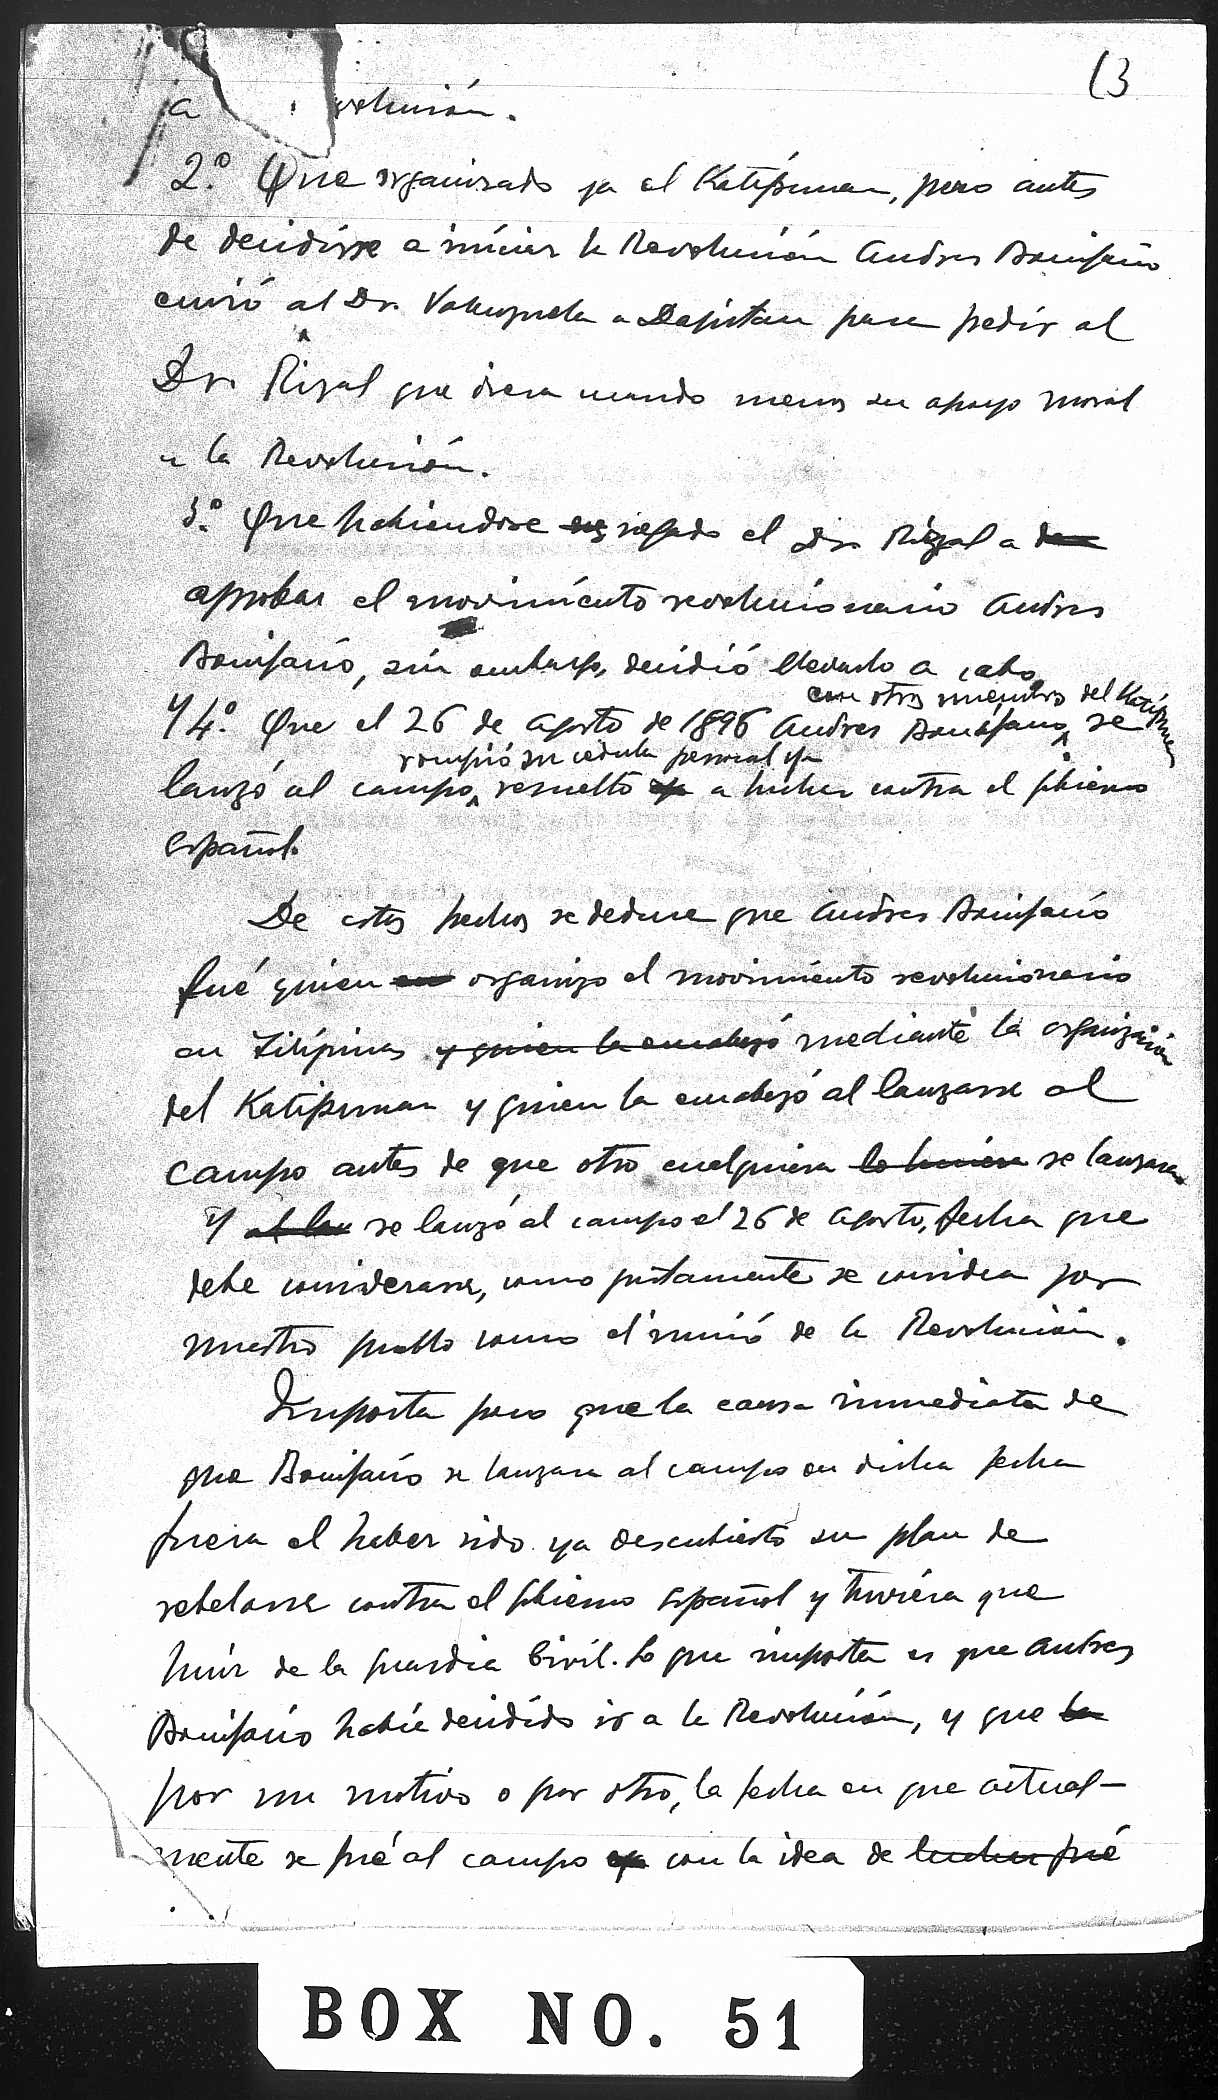 13
a volución.
2.º Que organizado ya el Katipunan, pero antes
de decidirse a iniciar la Revolución Andres Bonifacio
envió al Dr. Valenzuela a Dapitan para pedir al
Dr. Rizal que diera cuando menos su apoyo moral
a la Revolución.
3.º Que habiendose negado el Dr. Rizal a
aprobar el movimiento revolucionario Andres
Bonifacio, sin embargo, decidió llevarlo a cabo
con otros miembros del Katipunan
y 4.º Que el 26 de Agosto de 1896 Andres Bonifacio, se
rompió su cedula personal y
lanzó al campo, resuelto a luchar contra el gobierno
Español.
De estos hechos se deduce que Andres Bonifacio
fué quien organizo el movimiento revolucionario
en Filipinas y quien la encabezó mediante la organización
del Katipunan y quien la encabezó al lanzarse al
campo antes de que otro cualquiera lo hiciera se lanzara
Y al lan se lanzó al campo el 26 de Agosto, fecha que
debe considerarse, como justamente se considera por
nuestro pueblo como el inicio de la Revolución.
Importa poco que la causa inmediata de
que Bonifacio se lanzara al campo en dicha fecha
fuera el haber sido ya descubierto su plan de
rebelarse contra el gobierno Español y tuviera que
huir de la Guardia Civil. Lo que importa es que Andres
Bonifacio habia decidido ir a la Revolución, y que la
por un motivo o por otro, la fecha en que actual-
mente se fué al campo con la idea de luchar fué
BOX NO. 51